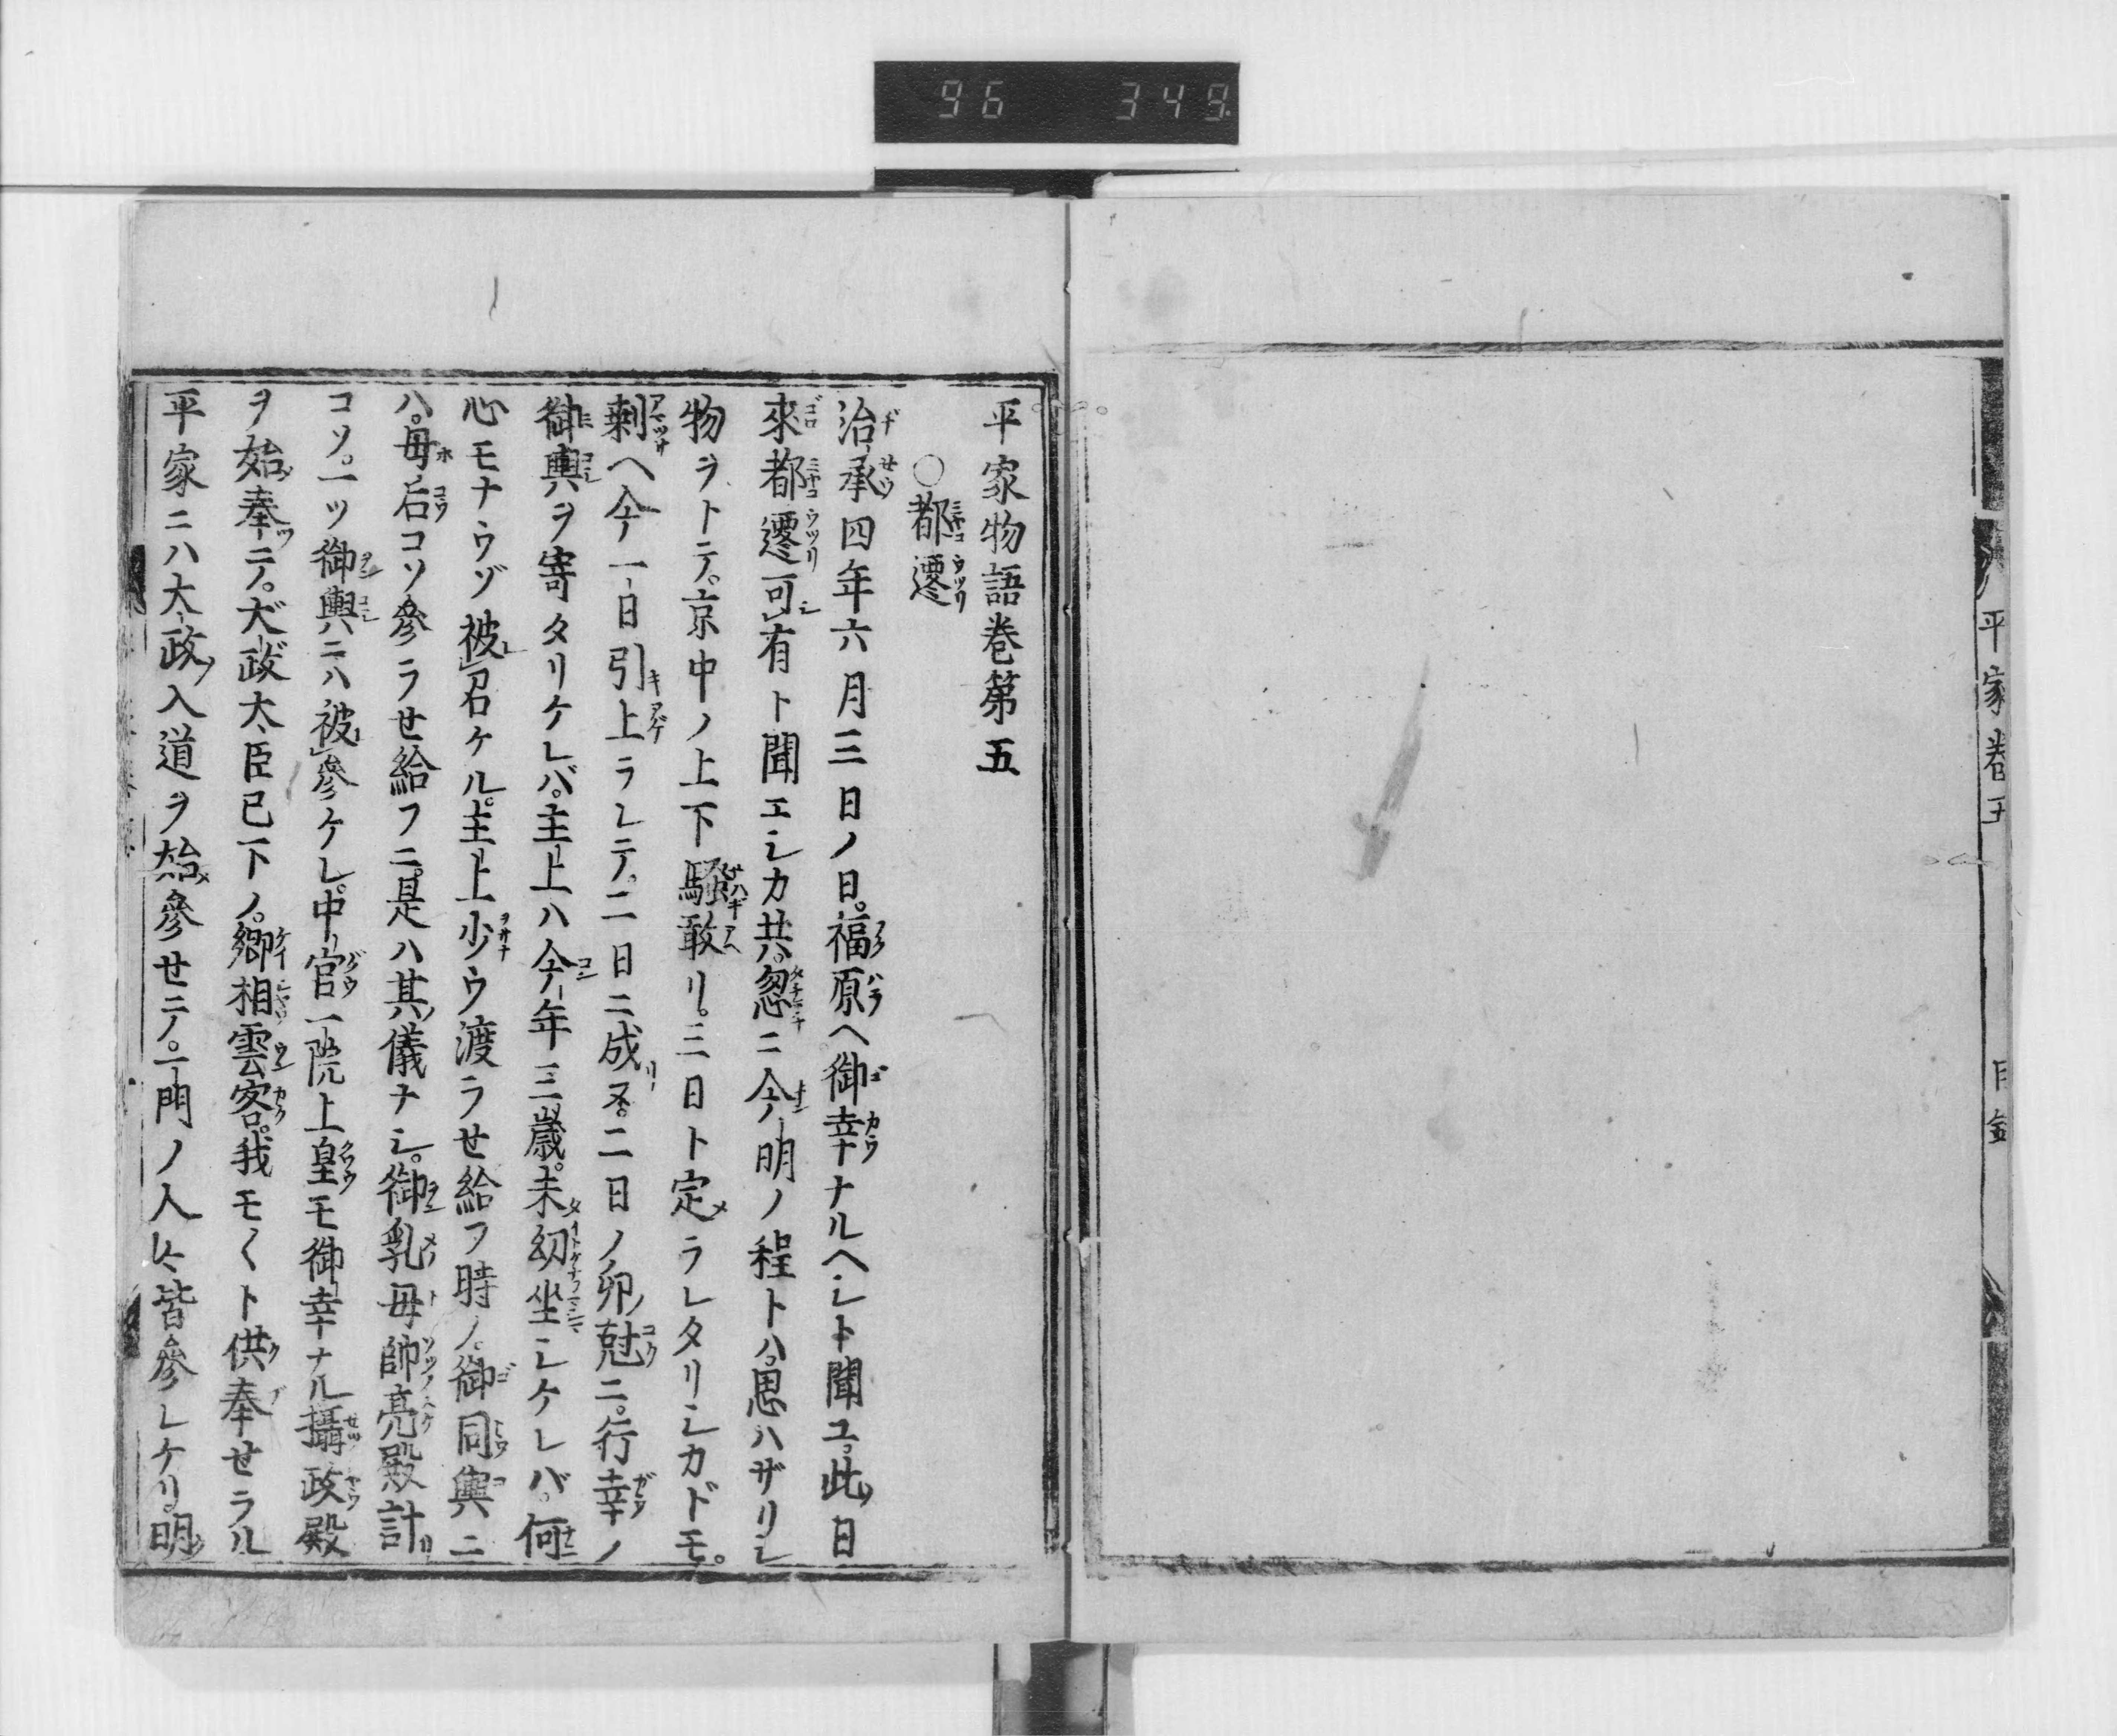 96 349
平家卷五
目録
平家物語巻第五
○都遷
治承四年六月三日ノ日。福原ヘ御幸ナルヘシト聞ユ。此日
來都遷可有ト聞エシカ共。忽ニ今明ノ程トハ。思ハザリシ
物ヲトテ。京中ノ上下騒敢リ。三日ト定ラレタリシカドモ。
剰ヘ今一日引上ラレテ。二日ニ成ヌ。二日ノ卯尅ニ。行幸ノ
御輿ヲ寄タリケレバ。主上ハ今年三歳。未幼坐シケレバ。何
心モナウゾ被召ケル。主上少ウ渡ラせ給フ時ノ。御同輿ニ
ハ。母后コソ參ラせ給フニ。是ハ其儀ナシ。御乳母帥亮殿計
コソ。一ツ御輿ニハ被參ケレ。中宮一院上皇モ御幸ナル。攝政殿
ヲ始奉テ。大政大臣已下ノ。卿相雲客。我モ〱ト供奉せラル
平家ニハ大政入道ヲ始參せテ。一門ノ人々皆參レケリ。明